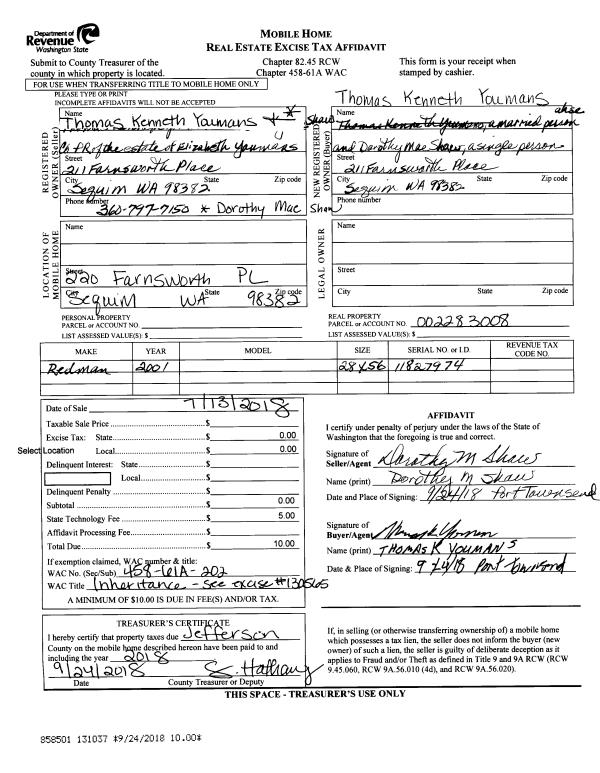 Department of
Revenue
Washington State
MOBILE HOME
REAL ESTATE EXCISE TAX AFFIDAVIT
Submit to County Treasurer of the
county in which property is located.
Chapter 82.45 RCW
Chapter 458-61A WAC
This form is your receipt when
stamped by cashier.
FOR USE WHEN TRANSFERRING TITLE TO MOBILE HOME ONLY
PLEASE TYPE OR PRINT
INCOMPLETE AFFIDAVITS WILL NOT BE ACCEPTED
REGISTERED
OWNER (Seller)
Name
Thomas Kenneth Youmans * *
PR of the estate of Elizabeth Youmans
Street
211 Farnsworth Place
City State Zip code
Sequim WA 98382
Phone number
360-797-7150 * Dorothy Mae Shaw
NEW REGISTERED
OWNER (Buyer)
Thomas Kenneth Youmans
Name
Thomas Kenneth Youmans, a married person
and Dorothy Mae Shaw, a single person
Street
211 Farnsworth Place
City State Zip code
Sequim WA 98382
Phone number
LOCATION OF
MOBILE HOME
Name
Street
220 Farnsworth PL
City State Zip code
Sequim WA 98382
LEGAL OWNER
Name
Street
City State Zip code
PERSONAL PROPERTY
PARCEL or ACCOUNT NO.
LIST ASSESSED VALUE(S): $
REAL PROPERTY
PARCEL or ACCOUNT NO. 002283008
LIST ASSESSED VALUE(S): $
MAKE YEAR MODEL SIZE SERIAL NO. or I.D. REVENUE TAX CODE NO.
Redman 2001 28x56 11827974
Date of Sale 7/13/2018
Taxable Sale Price $
Excise Tax: State $ 0.00
Select Location Local $ 0.00
Delinquent Interest: State $
Local $
Delinquent Penalty $
Subtotal $ 0.00
State Technology Fee $ 5.00
Affidavit Processing Fee $
Total Due $ 10.00
If exemption claimed, WAC number & title:
WAC No. (Sec/Sub) 458-61A-202
WAC Title Inheritance - see excise #130565
A MINIMUM OF $10.00 IS DUE IN FEE(S) AND/OR TAX.
AFFIDAVIT
I certify under penalty of perjury under the laws of the State of
Washington that the foregoing is true and correct.
Signature of
Seller/Agent Dorothy M Shaw
Name (print) Dorothy M Shaw
Date and Place of Signing: 9/24/18 Port Townsend
Signature of
Buyer/Agent
Name (print) THOMAS K YOUMANS
Date & Place of Signing: 9 24 18 Port Townsend
TREASURER'S CERTIFICATE
I hereby certify that property taxes due Jefferson
County on the mobile home described hereon have been paid to and
including the year 2018
9/24/2018
Date County Treasurer or Deputy
If, in selling (or otherwise transferring ownership of) a mobile home
which possesses a tax lien, the seller does not inform the buyer (new
owner) of such a lien, the seller is guilty of deliberate deception as it
applies to Fraud and/or Theft as defined in Title 9 and 9A RCW (RCW
9.45.060, RCW 9A.56.010 (4d), and RCW 9A.56.020).
THIS SPACE - TREASURER'S USE ONLY
858501 131037 *9/24/2018 10.00*